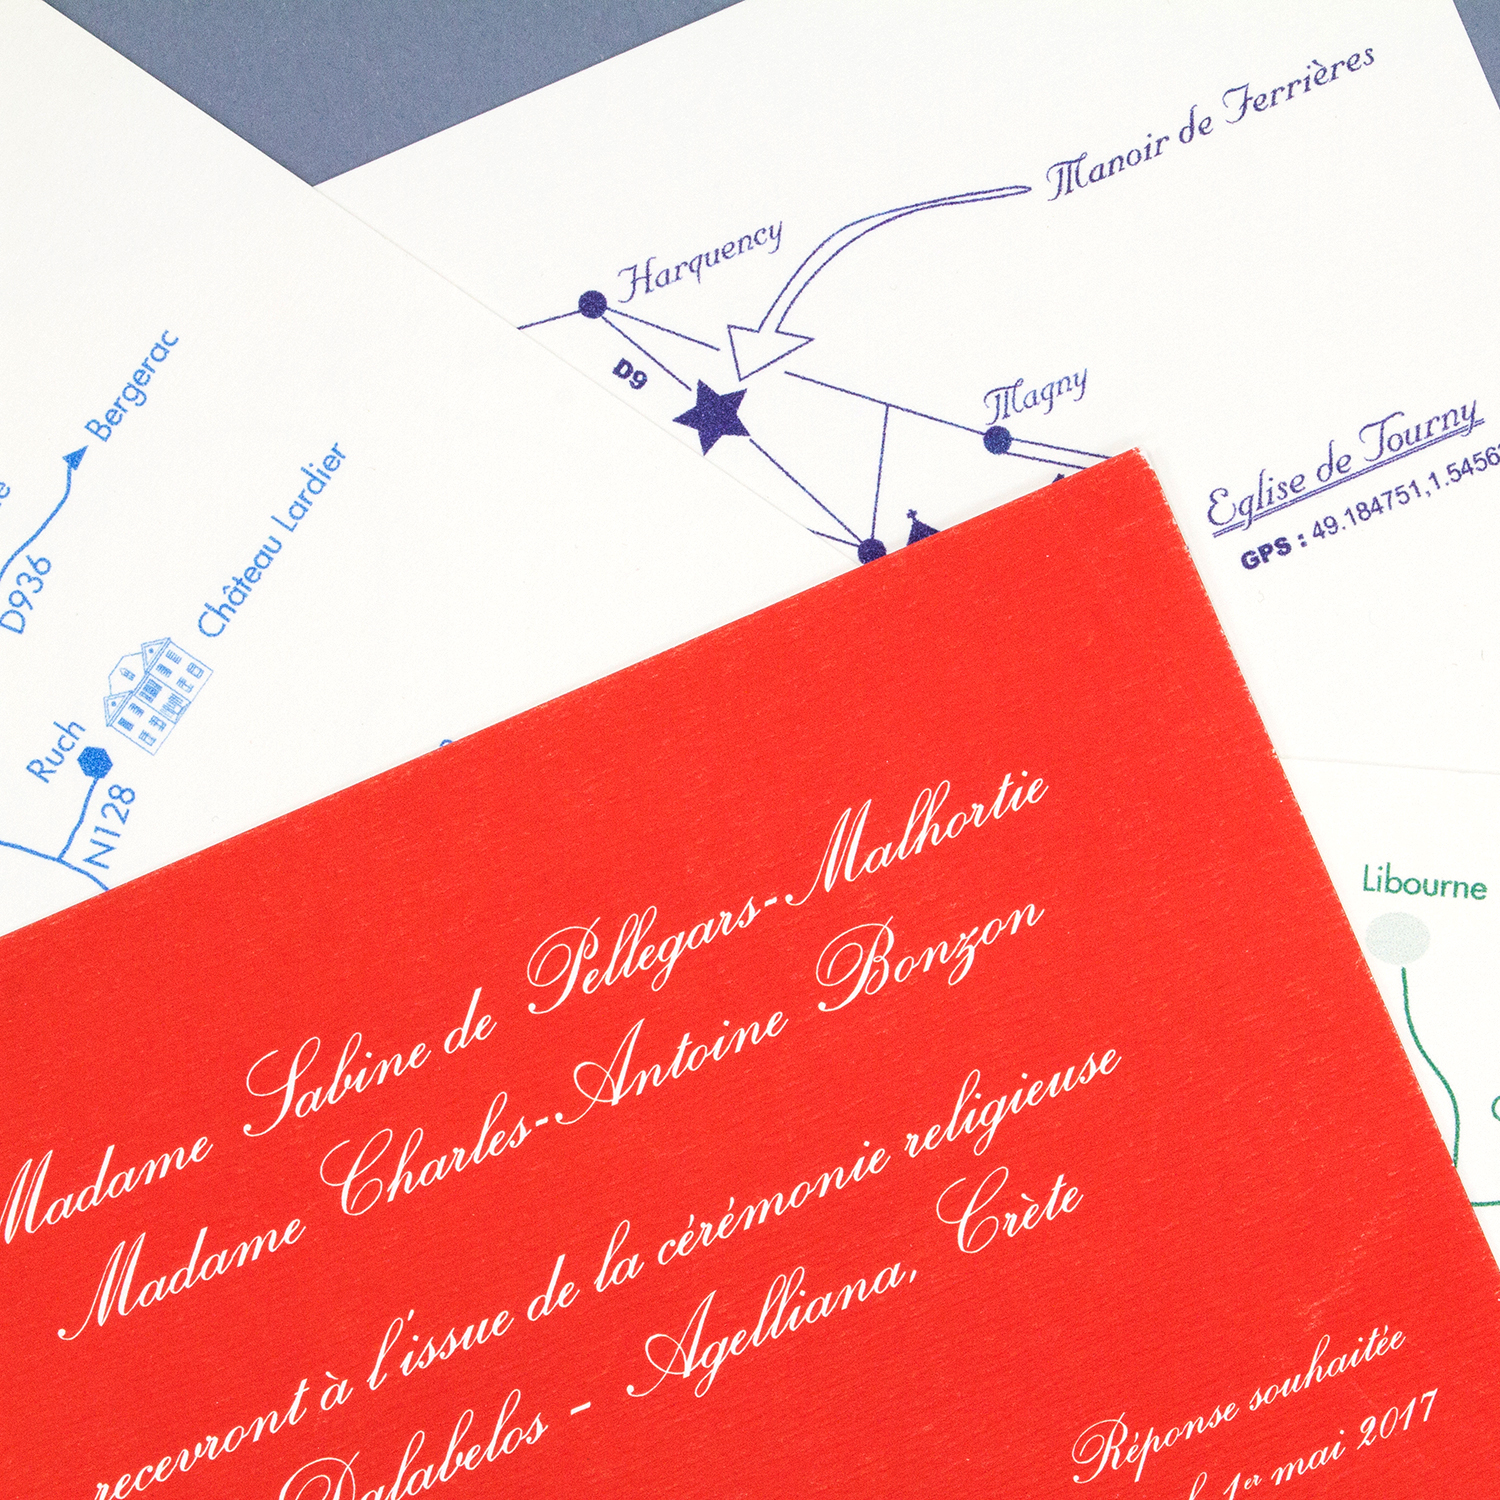 Manoir de Ferrières
Harquency
D9
Magny
Eglise de Tourny
GPS : 49.184751,1.5456
Bergerac
D936
Château Lardier
Ruch
N128
Libourne
Madame Sabine de Pellegars-Malhortie
Madame Charles-Antoine Bonzon
recevront à l'issue de la cérémonie religieuse
Dafabelos - Agelliana, Crète
Réponse souhaitée
1er mai 2017